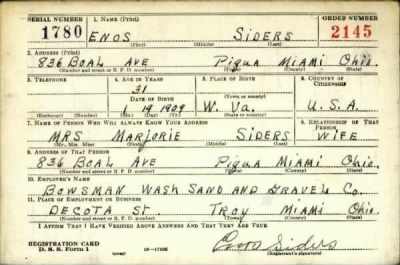 SERIAL NUMBER 1. NAME (Print) ORDER NUMBER
1780 ENOS SIDERS 2145
(First) (Middle) (Last)
2. ADDRESS (Print)
836 BOAL AVE PIQUA MIAMI OHIO.
(Number and street or R. F. D. number) (Town) (County) (State)
3. TELEPHONE 4. AGE IN YEARS 5. PLACE OF BIRTH 6. COUNTRY OF CITIZENSHIP
31
(Town or county)
DATE OF BIRTH
1 19 1909 W. Va. U.S.A.
(Exchange) (Number) (Mo.) (Day) (Yr.) (State or country)
7. NAME OF PERSON WHO WILL ALWAYS KNOW YOUR ADDRESS 8. RELATIONSHIP OF THAT PERSON
MRS MARJORIE SIDERS WIFE
(Mr., Mrs., Miss) (First) (Middle) (Last)
9. ADDRESS OF THAT PERSON
836 BOAL AVE PIQUA MIAMI OHIO.
(Number and street or R. F. D. number) (Town) (County) (State)
10. EMPLOYER'S NAME
BOWSMAN WASH SAND AND GRAVEL Co.
11. PLACE OF EMPLOYMENT OR BUSINESS
DECOTA St TROY MIAMI OHIO.
(Number and street or R. F. D. number) (Town) (County) (State)
I AFFIRM THAT I HAVE VERIFIED ABOVE ANSWERS AND THAT THEY ARE TRUE.
REGISTRATION CARD
D. S. S. Form 1 (over) 16-17105 Enos Siders
(Registrant's signature)